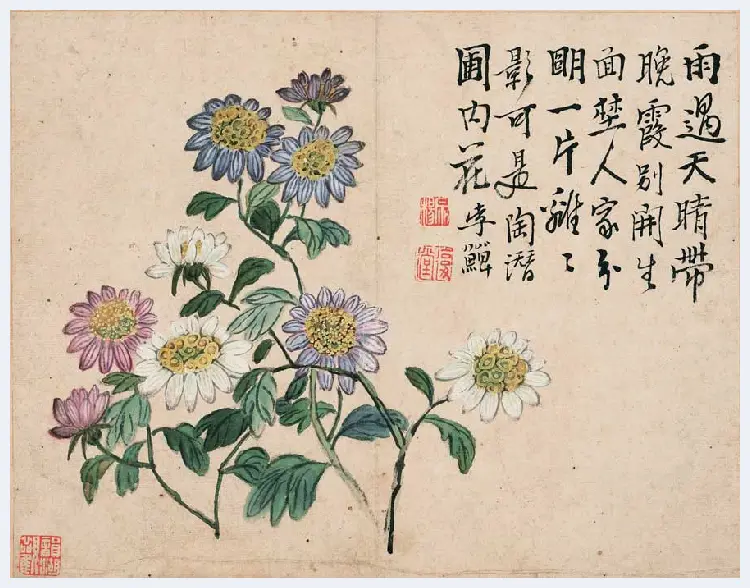 雨過天晴帶
晚霞别開生
面埜人家分
眀一片離〻
影可是陶潛
圃内花李鱓